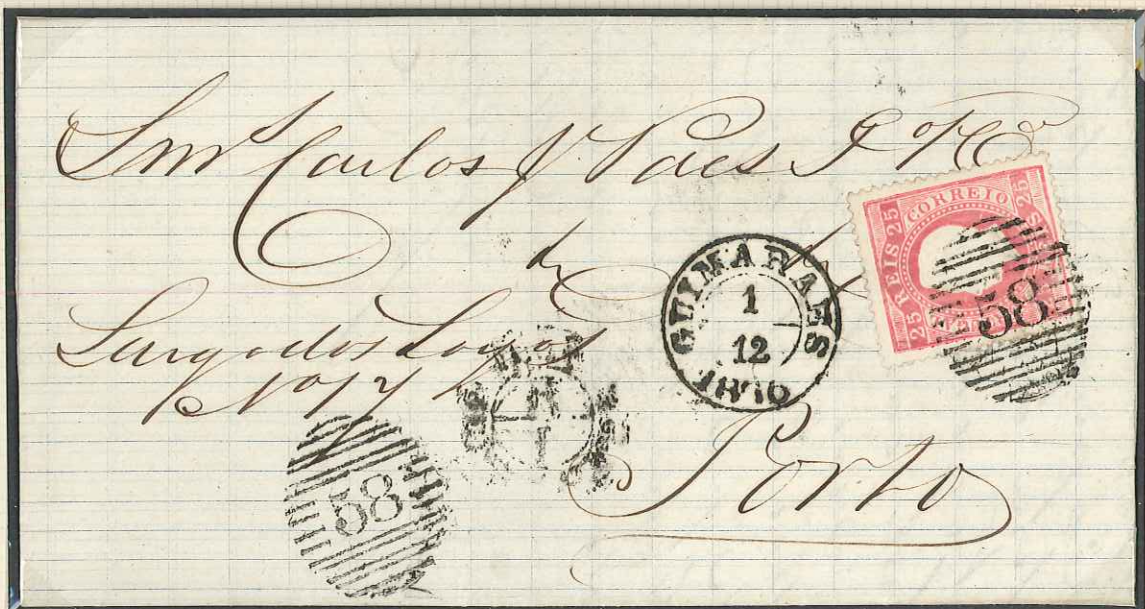 Snr Carlos J Paes F o & Ca
Largo dos Loyos
No
Porto
GUIMARAES
1
12
1876
CORREIO
25 REIS 25
25
58
58